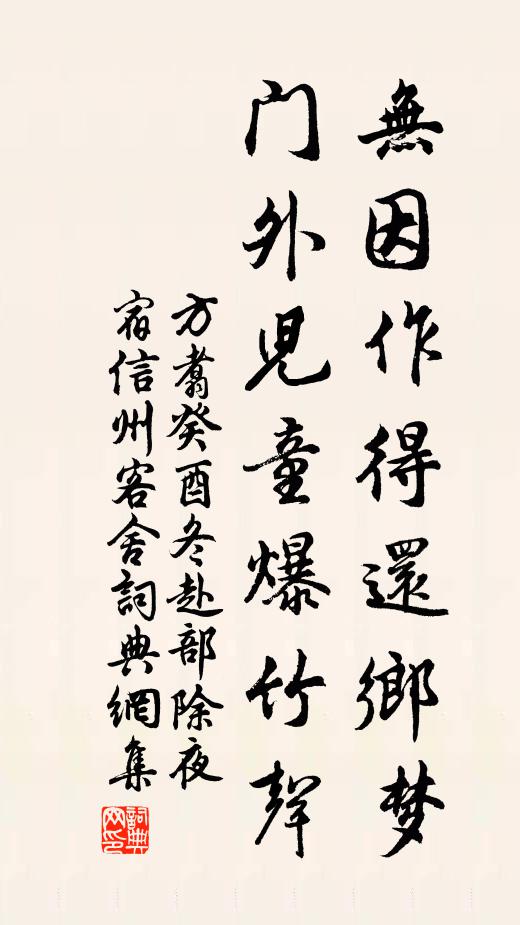 無因作得還鄉梦
门外児童爆竹聲
方翥癸酉冬赴部除夜
宿信州客舍詞典網集
詞典网印